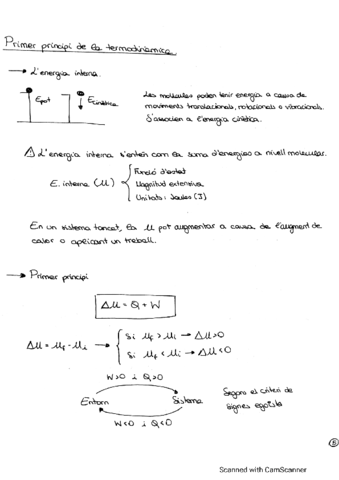 Primer principi de la termodinàmica
→ L'energia interna.
Epot
Ecinètica
Les molècules poden tenir energia a causa de
moviments translacionals, rotacionals o vibracionals.
S'associen a l'energia cinètica.
⚠ L'energia interna s'entén com la suma d'energies a nivell molecular.
E. interna (U)
Funció d'estat
Magnitud extensiva
Unitats: Joules (J)
En un sistema tancat, la U pot augmentar a causa de l'augment de
calor o aplicant un treball.
→ Primer principi
ΔU = Q + W
ΔU = Uf - Ui →
Si Uf > Ui → ΔU > 0
Si Uf < Ui → ΔU < 0
W>0 i Q>0
Entorn
Sistema
W<0 i Q<0
Segons el criteri de
signes egoista
Scanned with CamScanner